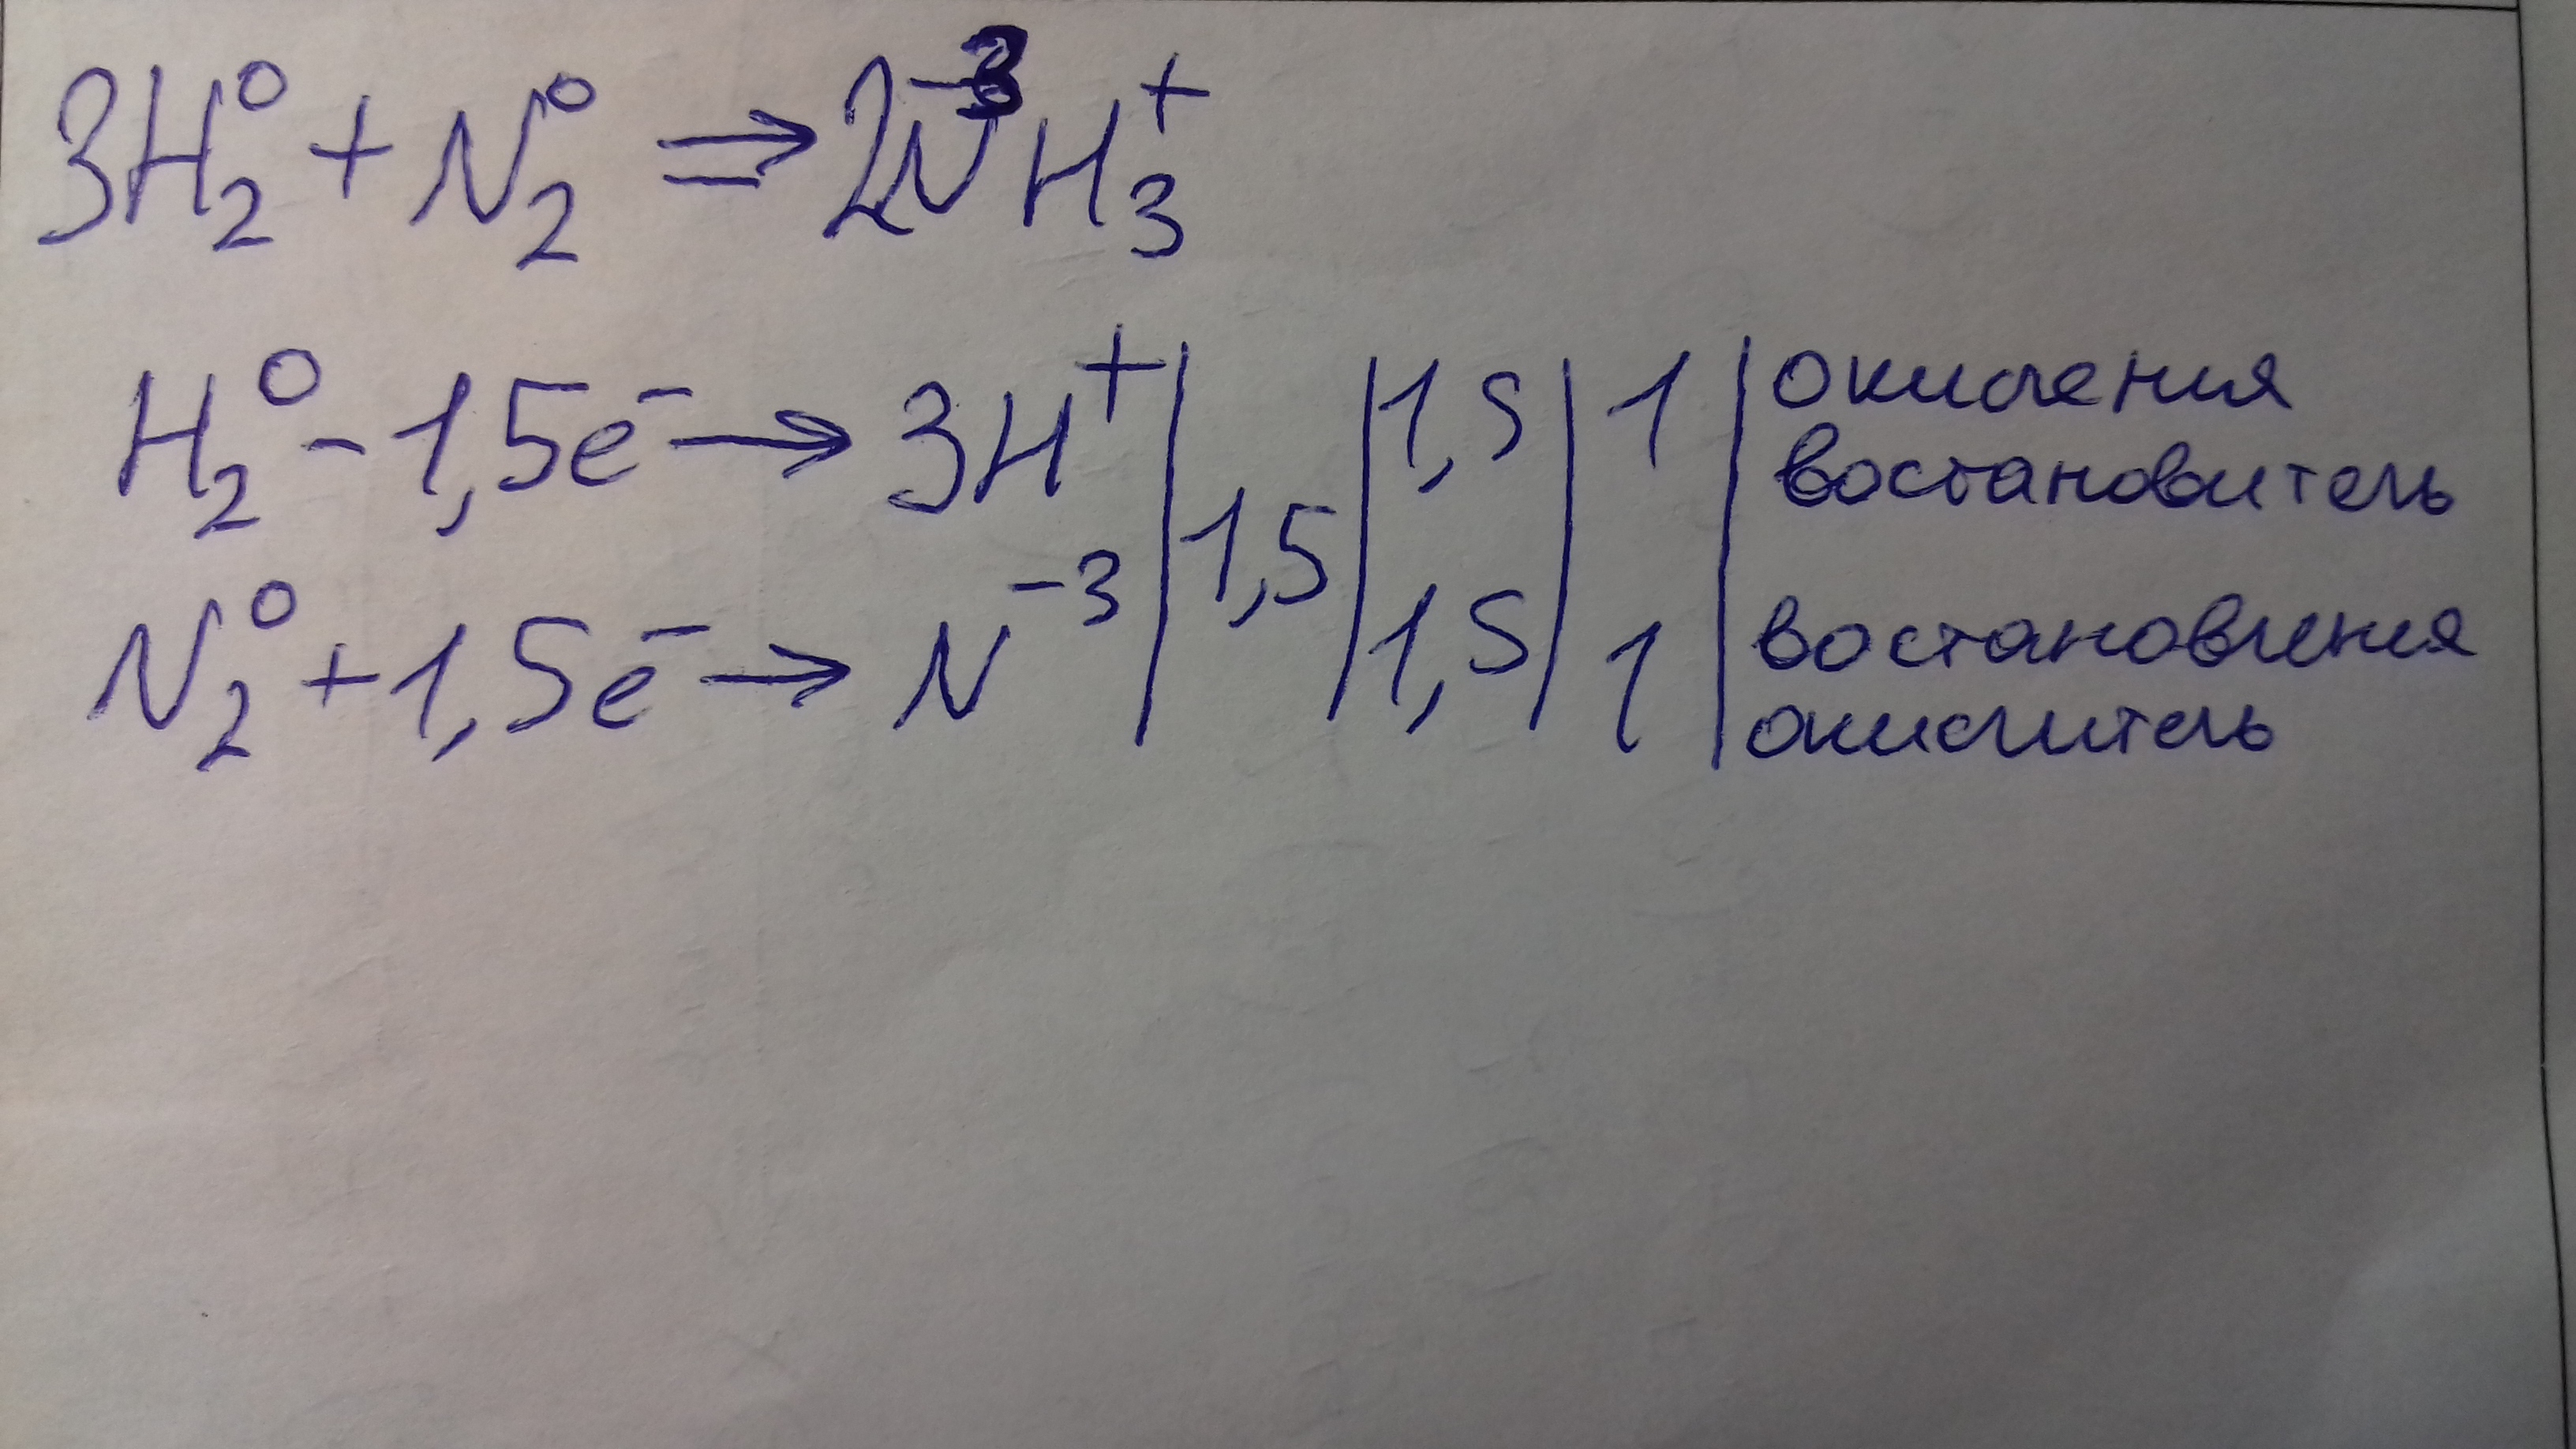 3H₂⁰ + N₂⁰ ⇒ 2N⁻³H₃⁺
H₂⁰ - 1,5e⁻ → 3H⁺ | | 1,5 | 1 | окисления
востановитель
1,5
N₂⁰ + 1,5e⁻ → N⁻³ | | 1,5 | 1 | востановления
окислитель